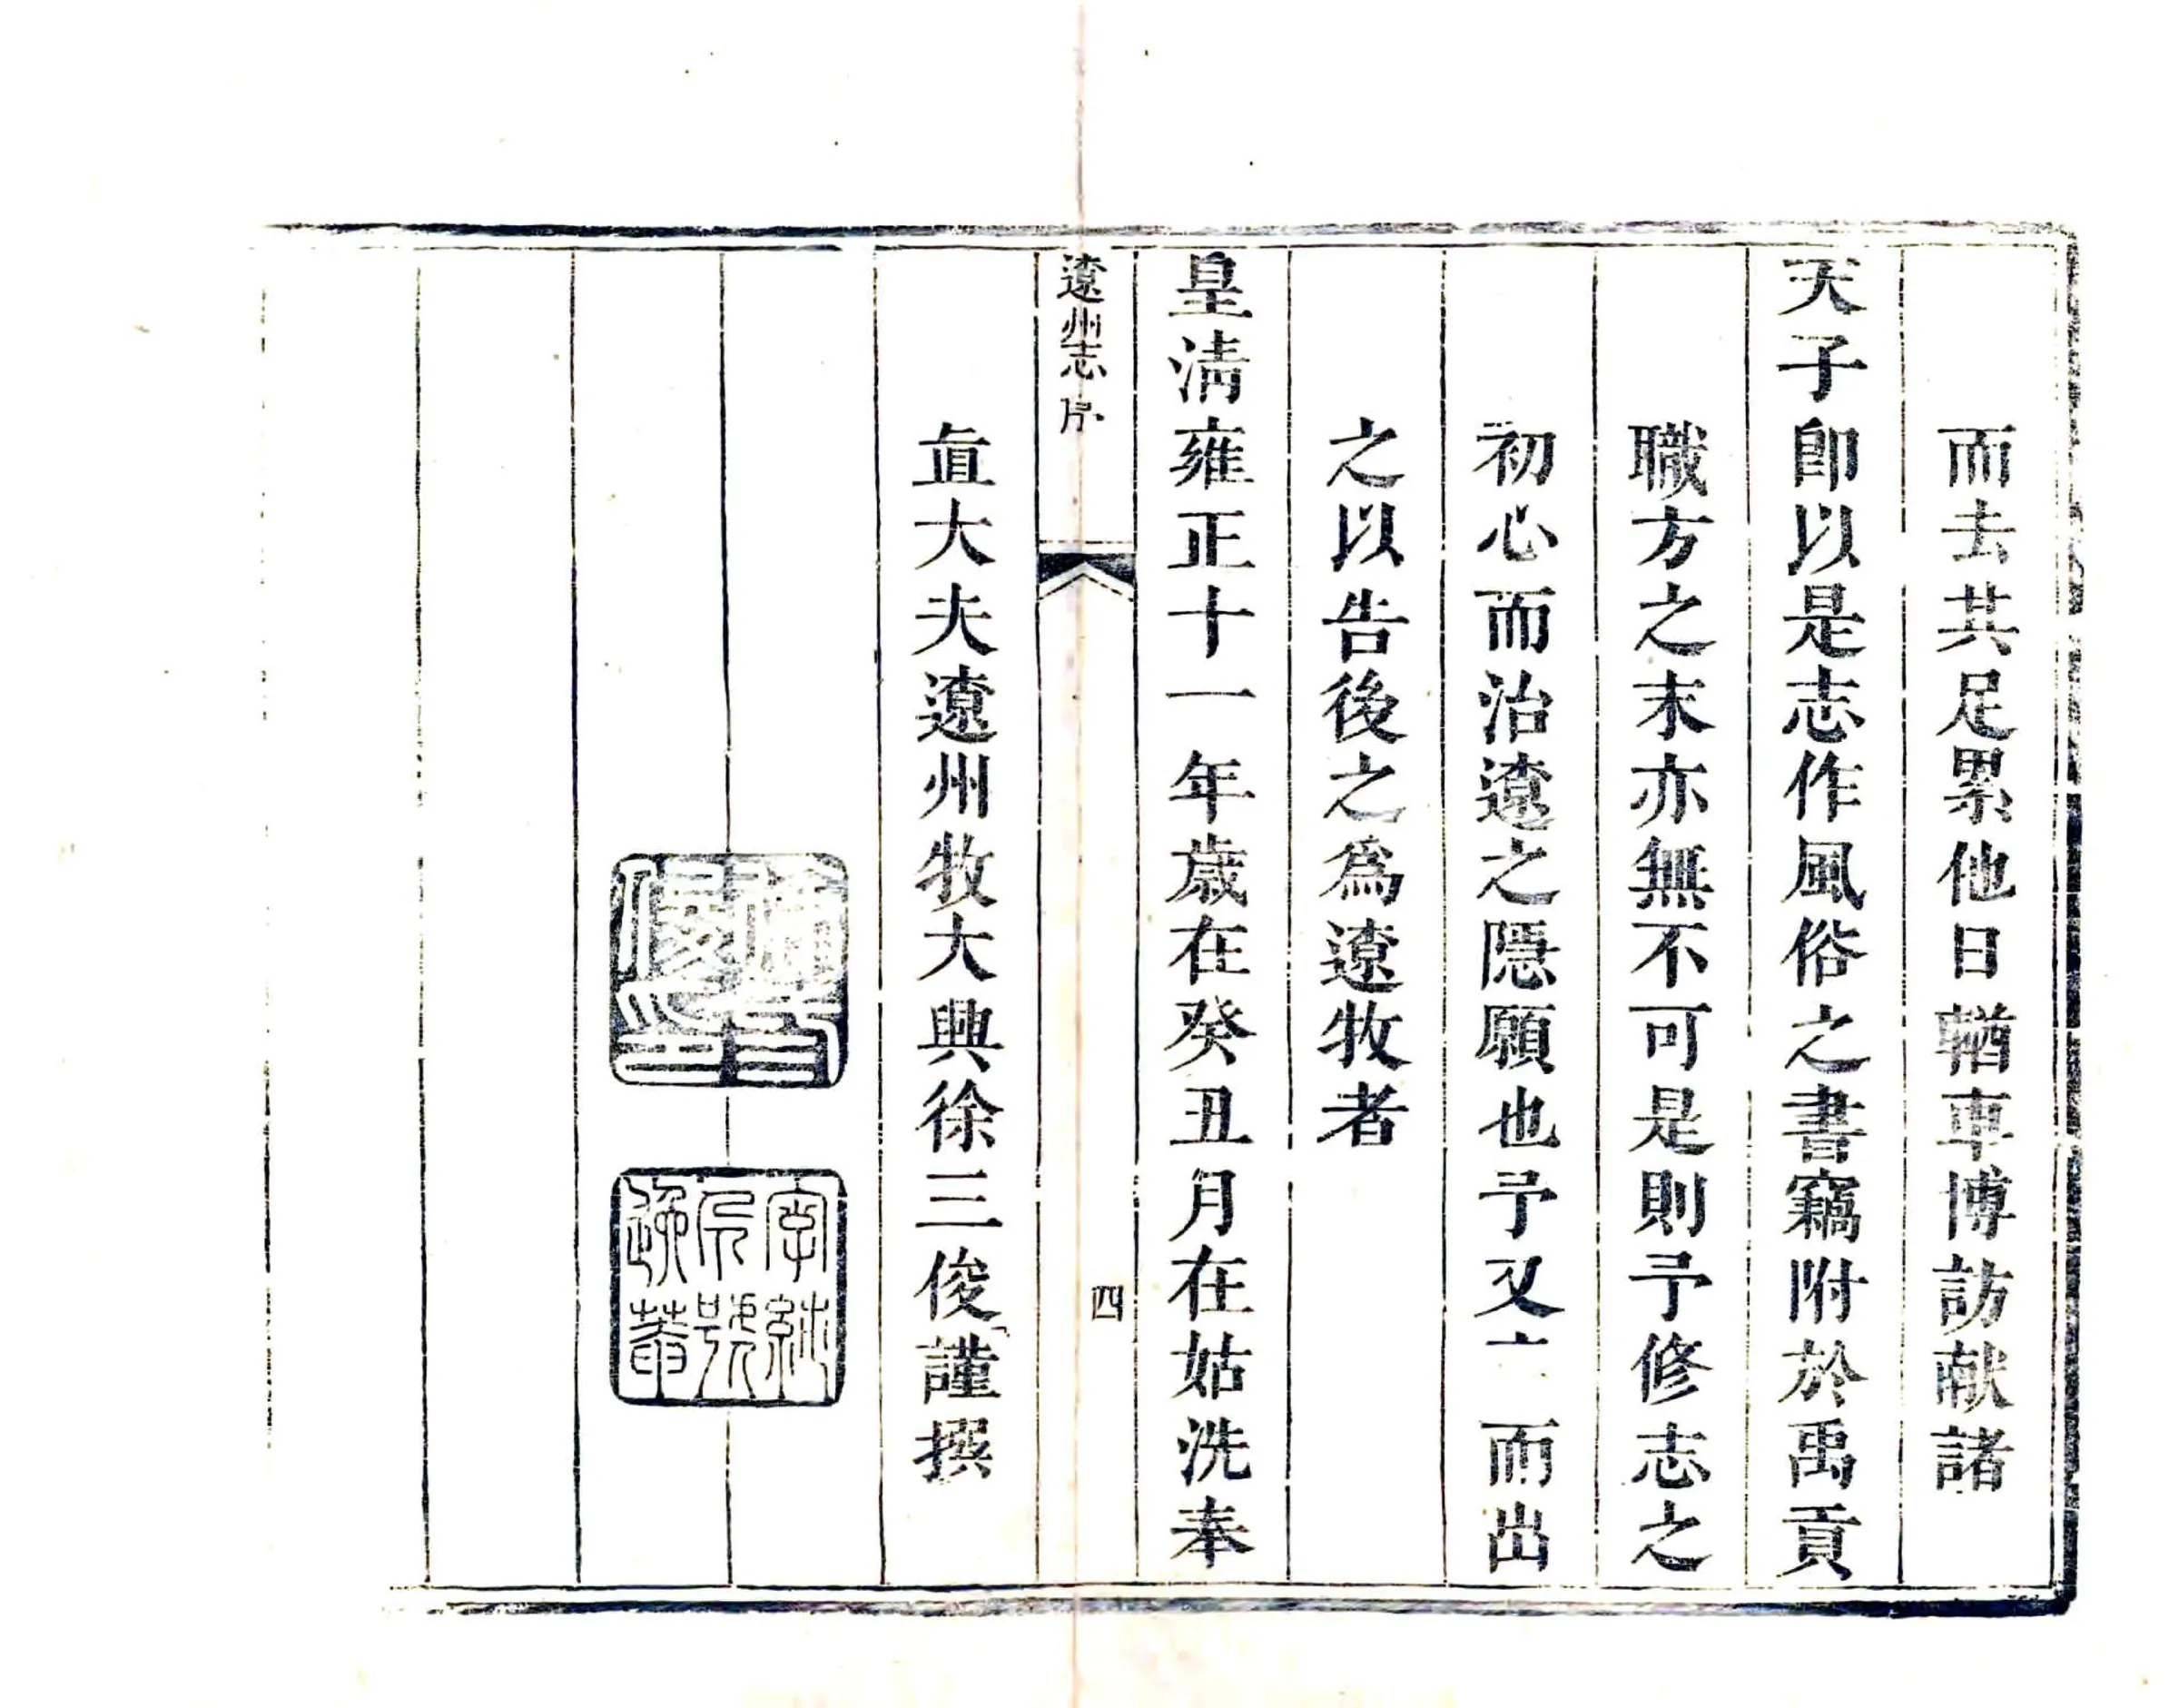 而去其足累他日輶車博訪献諸
天子卽以是志作風俗之書竊附於禹貢
職方之末亦無不可是則予修志之
初心而治遼之隠願也予又而出
之以告後之爲遼牧者
皇淸雍正十一年歲在癸丑月在姑洗奉
遼州志 序
四
直大夫遼州牧大興徐三俊謹撰
俊印
字號逸菴